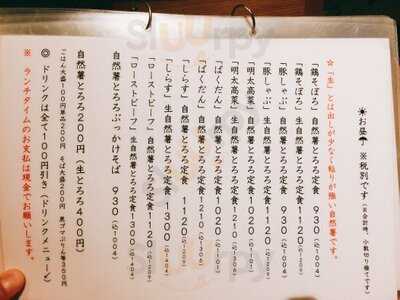 ☀お昼☂ ※税別です（お会計時、小数切り捨てです）
☆「生」とは出しが少なく粘りが強い自然薯です。
「鶏そぼろ」自然薯とろろ定食 930（込1004）
「鶏そぼろ」生自然薯とろろ定食 1120（込1209）
「豚しゃぶ」自然薯とろろ定食 930（込1004）
「豚しゃぶ」生自然薯とろろ定食 1120（込1209）
「明太高菜」自然薯とろろ定食 1020（込1101）
「明太高菜」生自然薯とろろ定食 1210（込1306）
「ばくだん」自然薯とろろ定食 1020（込1101）
「ばくだん」生自然薯とろろ定食 1210（込1306）
「しらす」自然薯とろろ定食 1120（込1209）
「しらす」生自然薯とろろ定食 1300（込1404）
「ローストビーフ」自然薯とろろ定食 1120（込1209）
「ローストビーフ」生自然薯とろろ定食 1300（込1404）
自然薯とろろぶっかけそば 930（込1004）
自然薯とろろ200円（生とろろ400円）
ごはん大盛100円単品200円 そば大盛200円 黒ゴマぷりん等300円
◎ ドリンクは全て100円引き（ドリンクメニューで）
※ ランチタイムのお支払は現金でお願いします。
Sluurpy